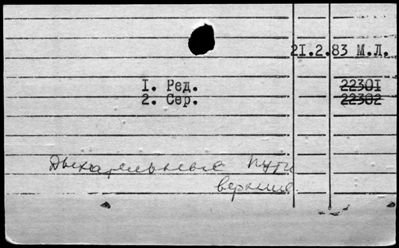 21.2.83 М.Л.
1. Ред. 22301
2. Сер. 22302
Дыхательные пути
верхние